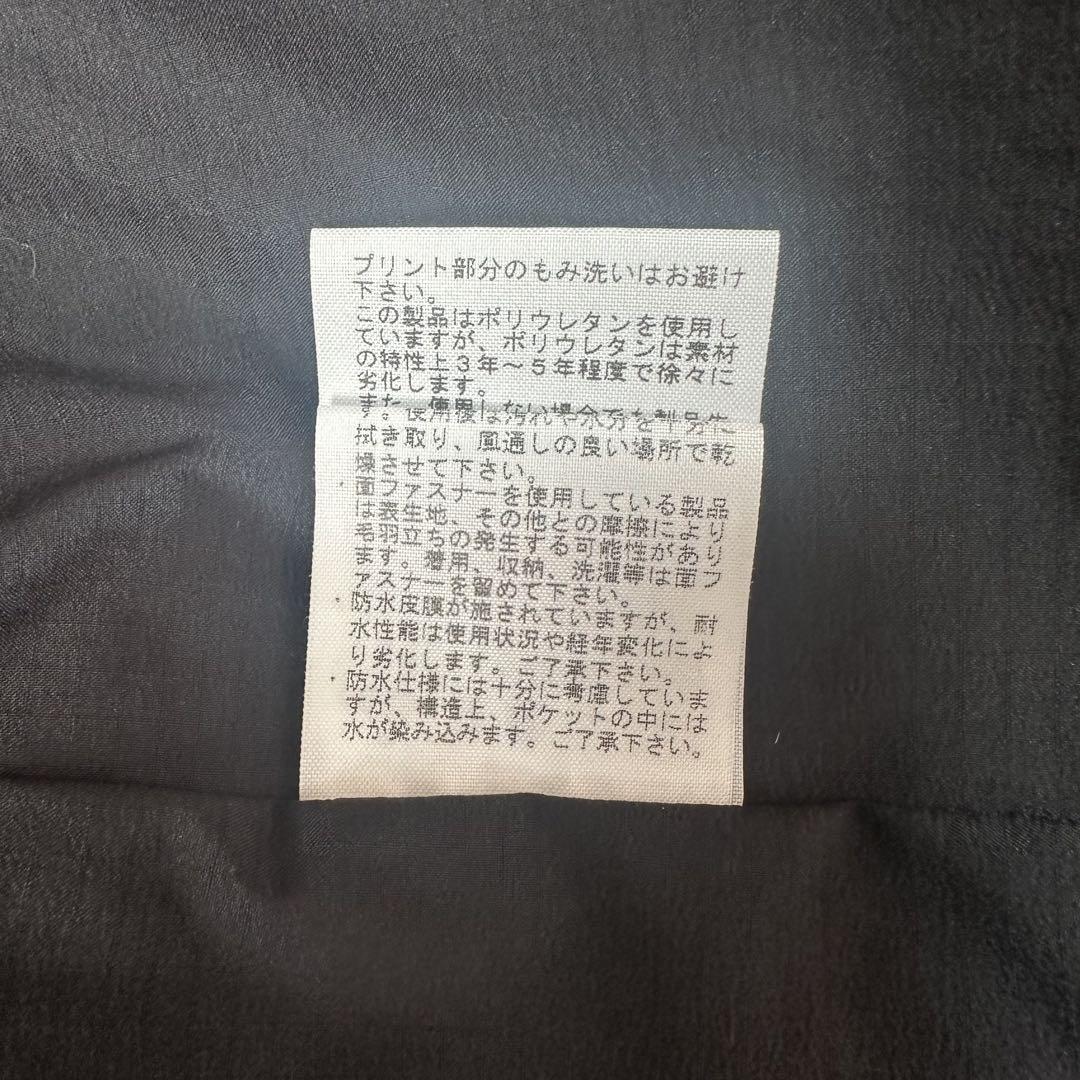 プリント部分のもみ洗いはお避け
下さい。
この製品はポリウレタンを使用し
ていますが、ポリウレタンは素材
の特性上3年～5年程度で徐々に
劣化します。
また使用後は汚れや余分
拭き取り、風通しの良い場所で乾
燥させて下さい。
・面ファスナーを使用している製品
は表生地、その他との摩擦により
毛羽立ちの発生する可能性があり
ます。着用、収納、洗濯等は面フ
ァスナーを留めて下さい。
・防水皮膜が施されていますが、耐
水性能は使用状況や経年変化によ
り劣化します。ご了承下さい。
・防水仕様には十分に考慮していま
すが、構造上、ポケットの中には
水が染み込みます。ご了承下さい。